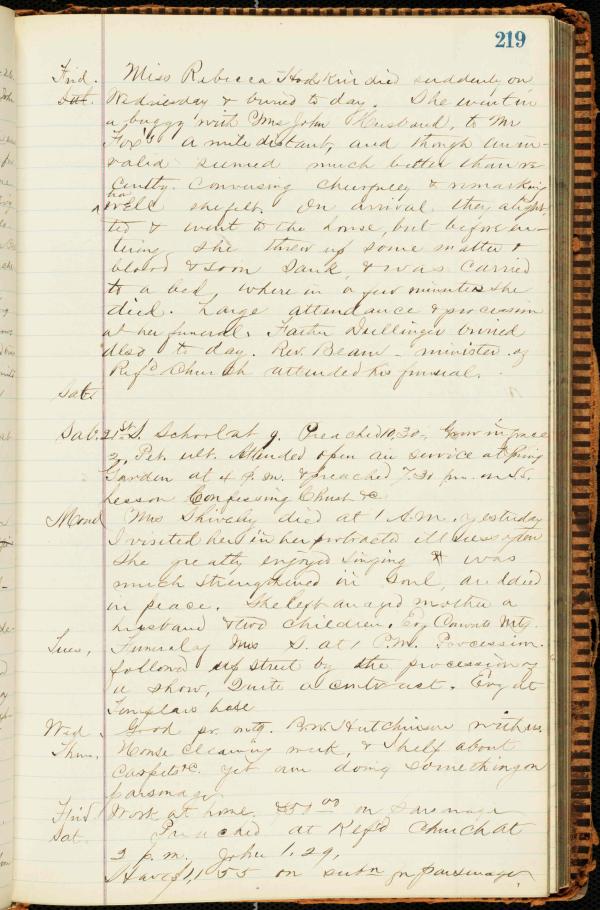 219
Frid. Miss Rebecca Hodskin died suddenly on
Sat. Wednesday & buried to day. She went in
a buggy with Mrs John Husband, to Mr
Fox's a mile distant, and though an in-
valid seemed much better than re-
cently. Conversing cheerfully & remarking
how
well she felt. On arrival they aligh-
ted & went to the house, but before en-
tering she threw up some matter &
blood & soon sank, & was carried
to a bed, where in a few minutes she
died. Large attendance & procession
at her funeral. Father Dullinger buried
also to day. Rev. Beam - minister of
Ref'd Church attended his funeral.
Sab
Sab. 21st S. School at 9. Preached 10,30, Grow in grace
2. Pet. ult. Attended open air service at Spring
Garden at 4 p.m. & preached 7.30 p.m. on S.S.
Lesson Confessing Christ &c
Mond Mrs Shively died at 1 A.M. yesterday
I visited her in her protracted illness often
She greatly enjoyed singing & was
much strengthened in soul, and died
in peace. She left an aged mother a
husband & two children. Evg Comt Mtg.
Tues, Funeral of Mrs S. at 1 P.M. Procession
followed up street by the procession of
a show, Quite a contrast. Evg at
Templars here
Wed. Good pr. mtg. Bro. Hutchinson with us.
Thu, House cleaning week, & I help about
carpets &c. yet am doing something on
parsonage
Frid Work at home, $50 00 on parsonage
Sat. Preached at Ref'd Church at
2 p.m. John 1.29,
Have $1,155 on subn for parsonage